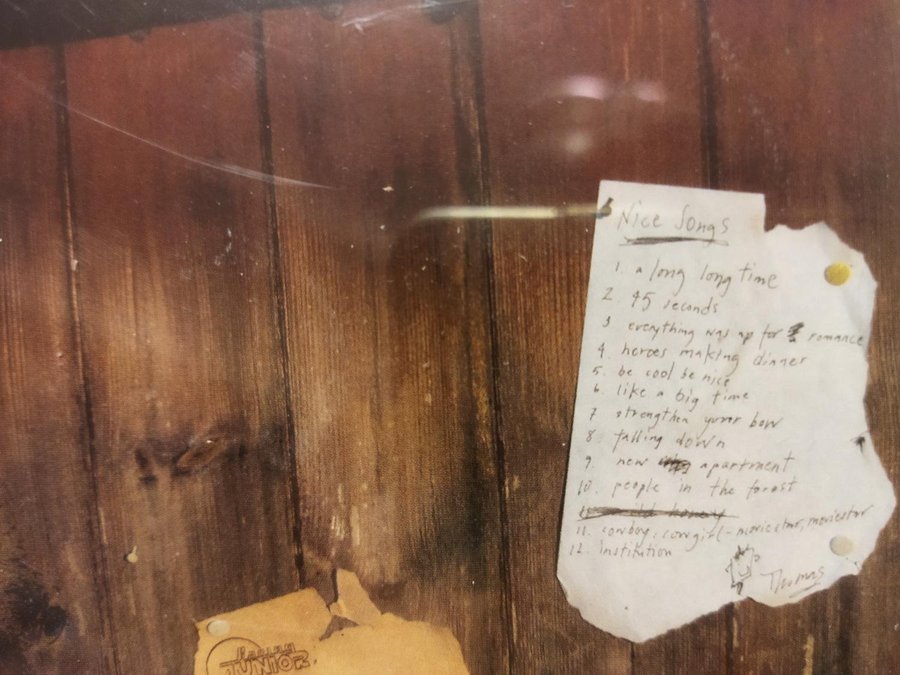 Nice Songs
1. a long long time
2. 45 seconds
3 everything was up for romance
4. heroes making dinner
5. be cool be nice
6. like a big time
7 strengthen yurer bow
8. falling down
9. new apartment
10. people in the forest
11. cowboy, cowgirl - moviestar, moviestar
12. Institution
Thomas
JUNIOR